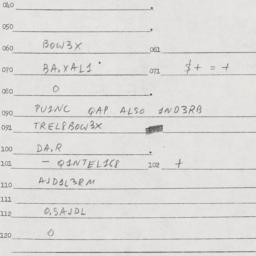 040
050
060 BOW3X 061
070 BA,XAL1 071 $+ = +
080 O
090 PU1NC GAP ALSO 1ND3RB
091 TREL8BOW3X
100 DA,R
101 - Q1NTEL1C8 102 +
110 AJD1L38M
111
112 O,SAJDL
120 O